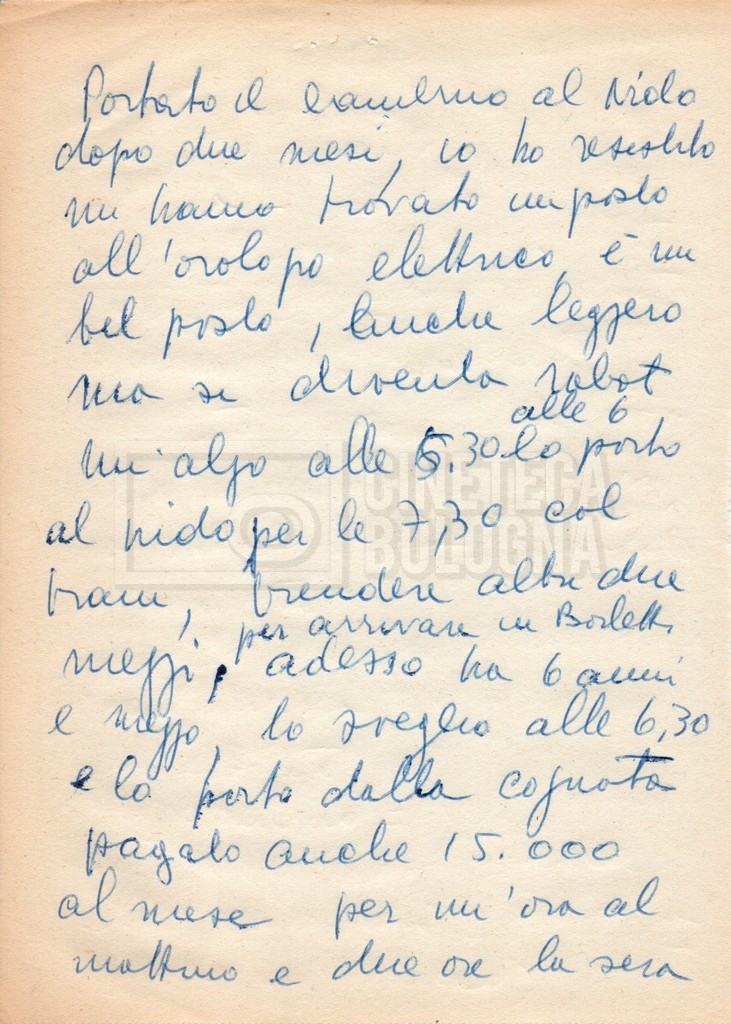 Portato il bambino al Nido
dopo due mesi, io ho resistito
mi hanno trovato un posto
all'orologio elettrico, è un
bel posto, anche leggero
ma si diventa robot
alle 6
mi alzo alle 5.30 lo porto
al nido per le 7,30 col
tram, prendere altri due
per arrivare in Borletti
mezzi, adesso ha 6 anni
e mezzo, lo sveglio alle 6,30
e lo porto dalla cognata
pagato anche 15.000
al mese per un'ora al
mattino e due ore la sera
CINETECA
BOLOGNA